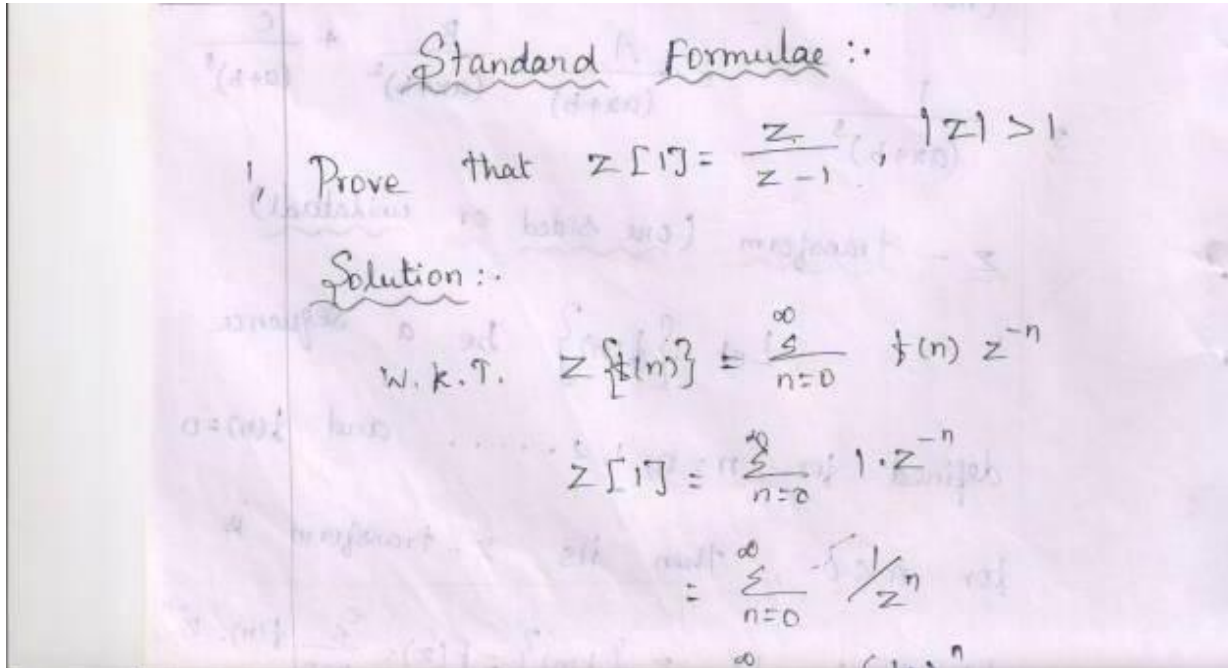 Standard Formulae :.
1, Prove that Z[1] = z/(z-1), |z| > 1
Solution :.
W.K.T. Z{f(n)} = ∞Σn=0 f(n) z^-n
Z[1] = ∞Σn=0 1·z^-n
= ∞Σn=0 1/z^n